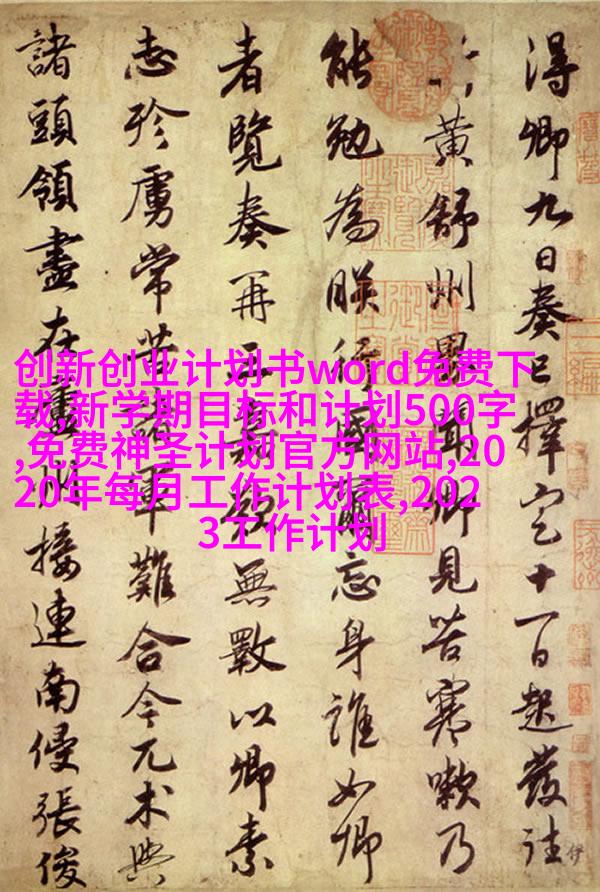 得卿九日奏已擇定十一日起發往
黃舒州界聞卿見苦寒嗽乃
能勉為朕行國爾忘身誰如卿
者覽奏再三嘉歎無斁以卿素
志殄虜常苦諸軍難合今兀朮與
諸頭領盡在廬州接連南侵張俊
创新创业计划书word免费下
载,新学期目标和计划500字
,免费神圣计划官方网站,20
20年每月工作计划表,202
3工作计划